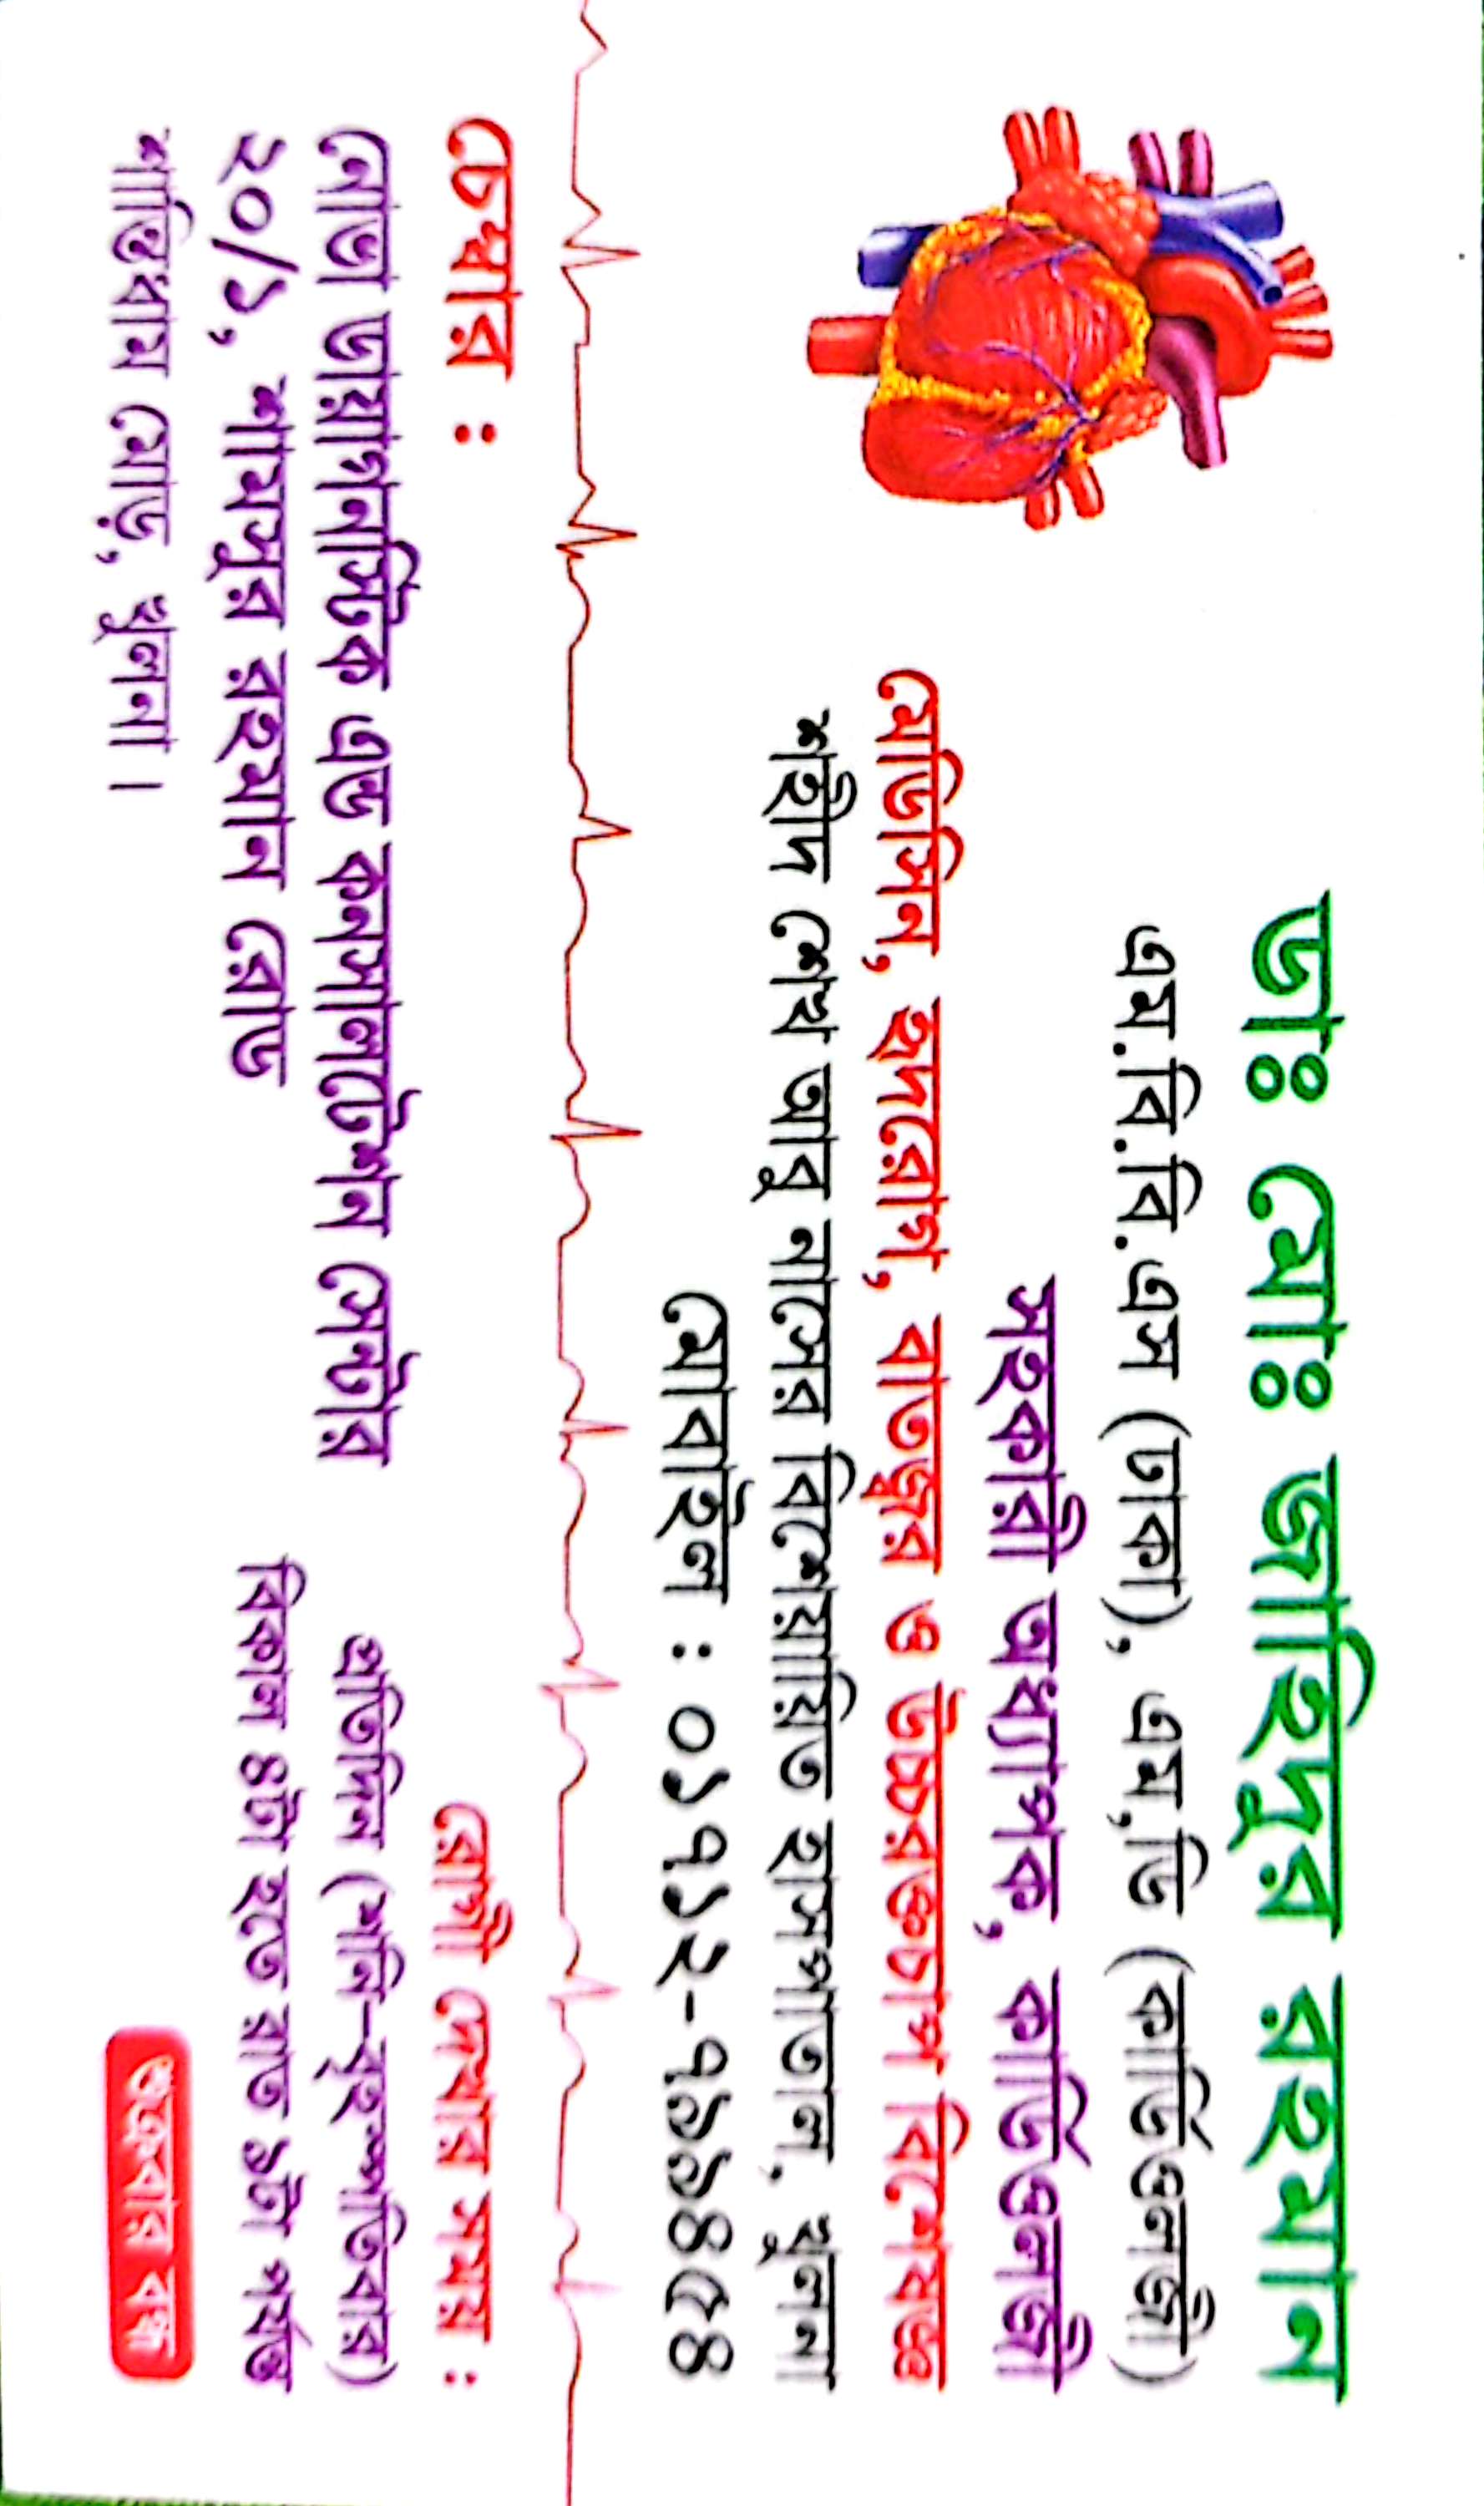 ডাঃ মোঃ জাহিদুর রহমান
এম.বি.বি.এস (ঢাকা), এম,ডি (কার্ডিওলজী)
সহকারী অধ্যাপক, কার্ডিওলজী
মেডিসিন, হৃদরোগ, বাতজ্বর ও উচ্চরক্তচাপ বিশেষজ্ঞ
শহীদ শেখ আবু নাসের বিশেষায়িত হাসপাতাল, খুলনা
মোবাইল : ০১৭১২-৭৯৯৪৫৪
চেম্বার :
নোভা ডায়াগনস্টিক এন্ড কনসালটেশন সেন্টার
২০/১, শামসুর রহমান রোড
শান্তিধাম মোড়, খুলনা।
রোগী দেখার সময় :
প্রতিদিন (শনি-বৃহস্পতিবার)
বিকাল ৪টা হতে রাত ৯টা পর্যন্ত
শুক্রবার বন্ধ